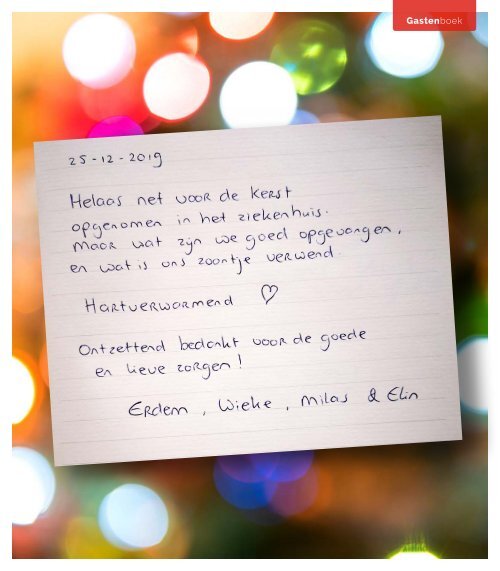 Gastenboek
25-12-2019
Helaas net voor de kerst
opgenomen in het ziekenhuis.
maar wat zijn we goed opgevangen,
en wat is ons zoontje verwend.
Hartverwarmend ♡
Ontzettend bedankt voor de goede
en lieve zorgen!
Erdem, Wieke, Milas & Elin